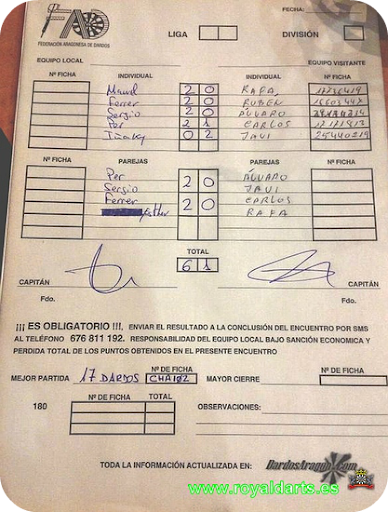 FAD
FEDERACIÓN ARAGONESA DE DARDOS
FECHA:
LIGA DIVISIÓN
EQUIPO LOCAL EQUIPO VISITANTE
Nº FICHA INDIVIDUAL INDIVIDUAL Nº FICHA
2 0 RAFA
Ferrer 2 0 RUBEN
Sergio 2 0 ALVARO
Per 2 1 CARLOS
Iñaky 0 2 JAVI
Nº FICHA PAREJAS PAREJAS Nº FICHA
Per ALVARO
Sergio 2 0 JAVI
Ferrer 2 0 CARLOS
RAFA
TOTAL
6 1
CAPITÁN CAPITÁN
Fdo. Fdo.
¡¡¡ ES OBLIGATORIO !!!, ENVIAR EL RESULTADO A LA CONCLUSIÓN DEL ENCUENTRO POR SMS
AL TELÉFONO 676 811 192. RESPONSABILIDAD DEL EQUIPO LOCAL BAJO SANCIÓN ECONOMICA Y
PERDIDA TOTAL DE LOS PUNTOS OBTENIDOS EN EL PRESENTE ENCUENTRO
Nº DE FICHA Nº DE FICHA
MEJOR PARTIDA 17 DARDOS MAYOR CIERRE
180 Nº DE FICHA TOTAL OBSERVACIONES:
TODA LA INFORMACIÓN ACTUALIZADA EN: DardosAragon.com
www.royaldarts.es